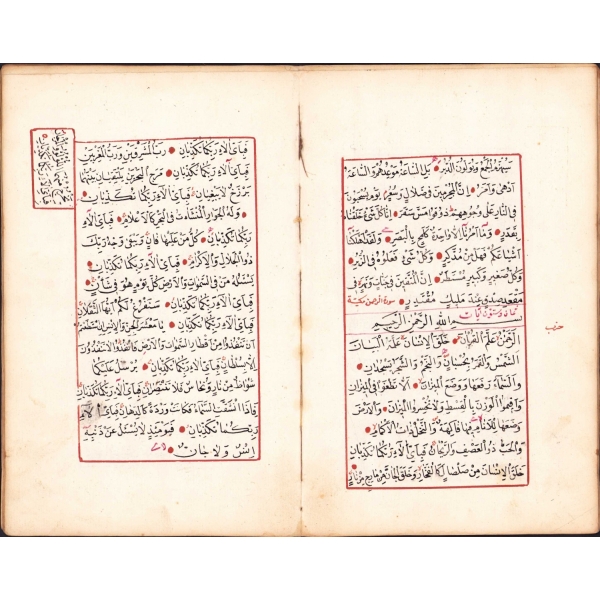 سيهزم الجمع ويولون الدبر بل الساعة موعدهم والساعة
ادهى وامر ان المجرمين في ضلال وسعر يوم يسحبون
في النار على وجوههم ذوقوا مس سقر انا كل شيء خلقناه
بقدر وما امرنا الا واحدة كلمح بالبصر ولقد اهلكنا
اشياعكم فهل من مدكر وكل شيء فعلوه في الزبر
وكل صغير وكبير مستطر ان المتقين في جنات ونهر في
مقعد صدق عند مليك مقتدر سورة الرحمن مكية
بسم الله الرحمن الرحيم
حزب
الرحمن علم القران خلق الانسان علمه البيان
الشمس والقمر بحسبان والنجم والشجر يسجدان
والسماء رفعها ووضع الميزان الا تطغوا في الميزان
واقيموا الوزن بالقسط ولا تخسروا الميزان والارض
وضعها للانام فيها فاكهة والنخل ذات الاكمام
والحب ذو العصف والريحان فباي الاء ربكما تكذبان
خلق الانسان من صلصال كالفخار وخلق الجان من مارج من نار
فباي الاء ربكما تكذبان رب المشرقين ورب المغربين
فباي الاء ربكما تكذبان مرج البحرين يلتقيان بينهما
برزخ لا يبغيان فباي الاء ربكما تكذبان
وله الجوار المنشئات في البحر كالاعلام فباي الاء
ربكما تكذبان كل من عليها فان ويبقى وجه ربك
ذو الجلال والاكرام فباي الاء ربكما تكذبان
يسئله من في السموات والارض كل يوم هو في شان
فباي الاء ربكما تكذبان سنفرغ لكم ايها الثقلان
فباي الاء ربكما تكذبان يا معشر الجن والانس ان استطعتم
ان تنفذوا من اقطار السموات والارض فانفذوا لا تنفذون
الا بسلطان فباي الاء ربكما تكذبان يرسل عليكما
شواظ من نار ونحاس فلا تنتصران فباي الاء ربكما تكذبان
فاذا انشقت السماء فكانت وردة كالدهان فباي الاء
ربكما تكذبان فيومئذ لا يسئل عن ذنبه
انس ولا جان